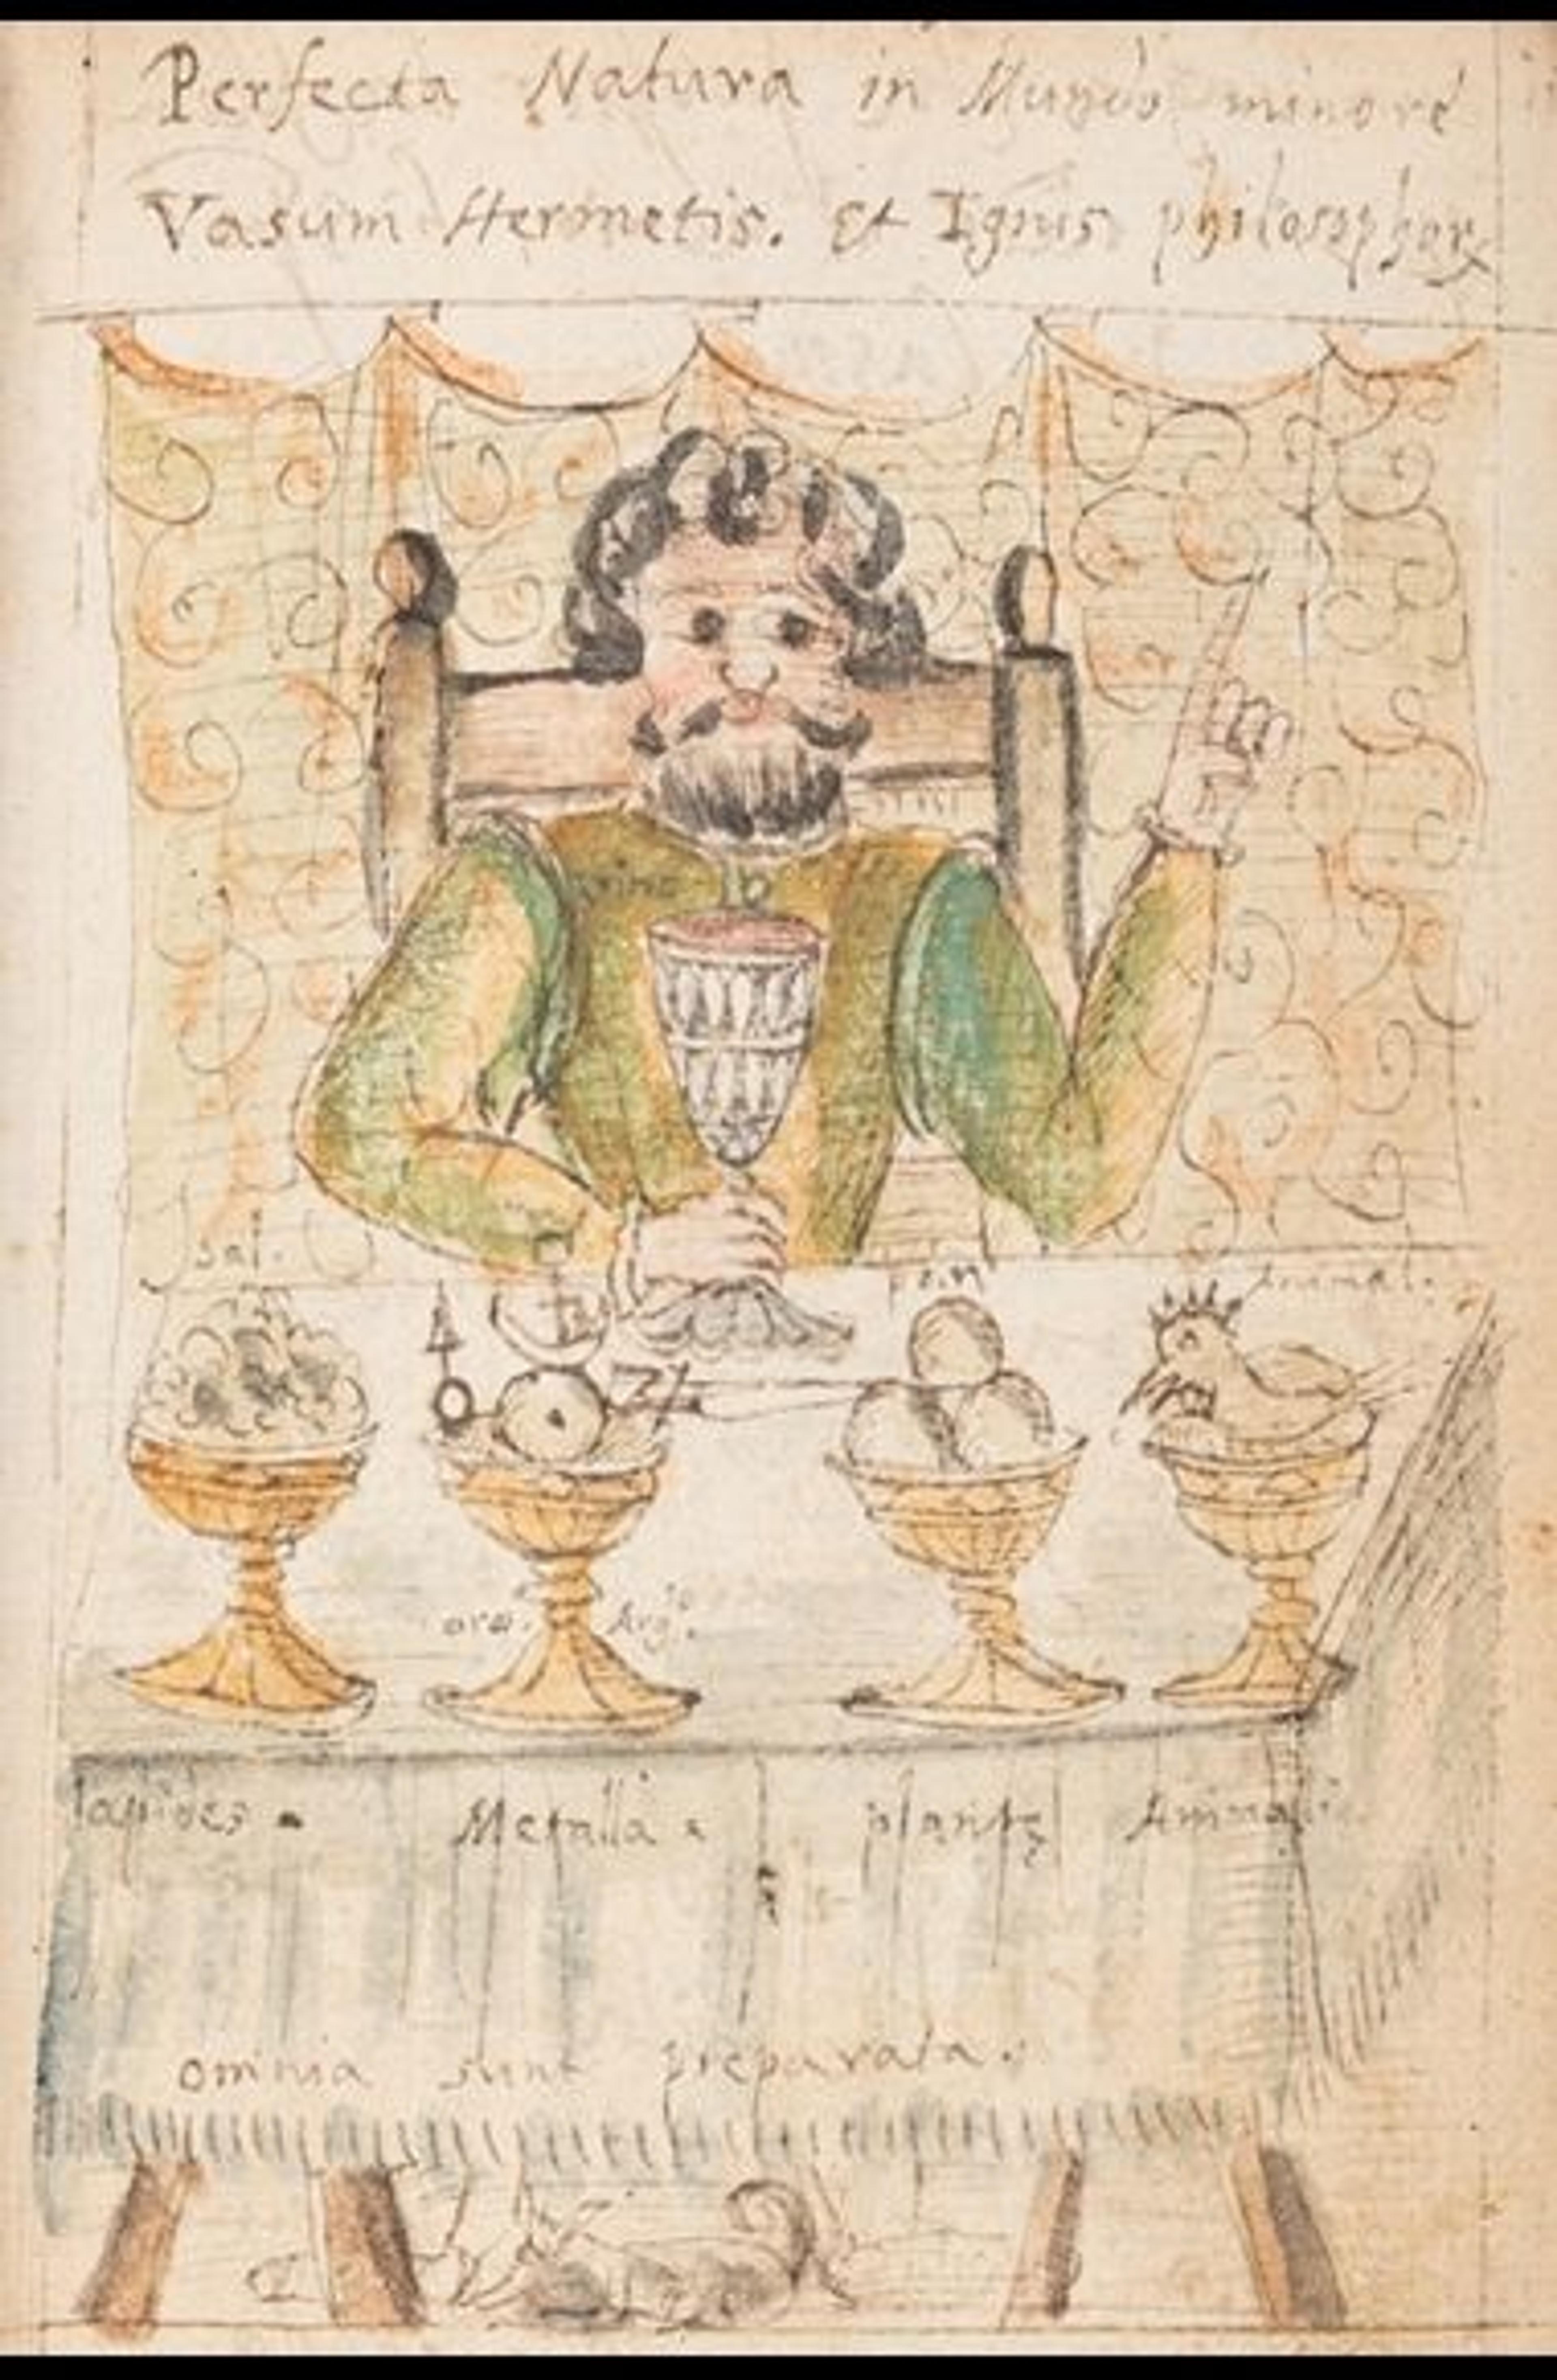 Perfecta Natura in Mundo minore
Vasum Hermetis. et Ignis philosophor
Sal.
Animal.
oro. Arg.
lapides. Metalla. plantę Animalia
omnia sunt preparata.